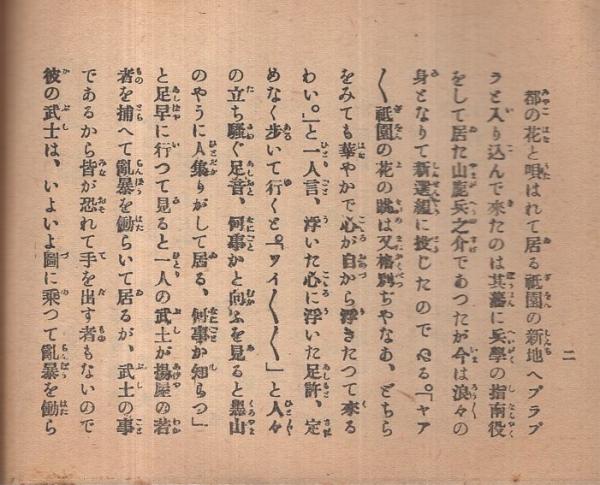 二
都の花と唄はれて居る祇園の新地へブラブ
ラと入り込んで來たのは其藩に兵學の指南役
をして居た山鹿兵之介であつたが今は浪々の
身となりて新選組に投じたのである。「ヤア
〱祇園の花の眺は又格別ぢやなあ、どちら
をみても華やかで心が自から浮きたつて來る
わい。」と一人言、浮いた心に浮いた足許、定
めなく步いて行くと「ワイ〱〱」と人々
の立ち騷ぐ足音、何事かと向ふを見ると黑山
のやうに人集りがして居る、何事か知らつ」
と足早に行つて見ると一人の武士が揚屋の若
者を捕へて亂暴を働らいて居るが、武士の事
であるから皆が恐れて手を出す者もないので
彼の武士は、いよいよ圖に乘つて亂暴を働ら